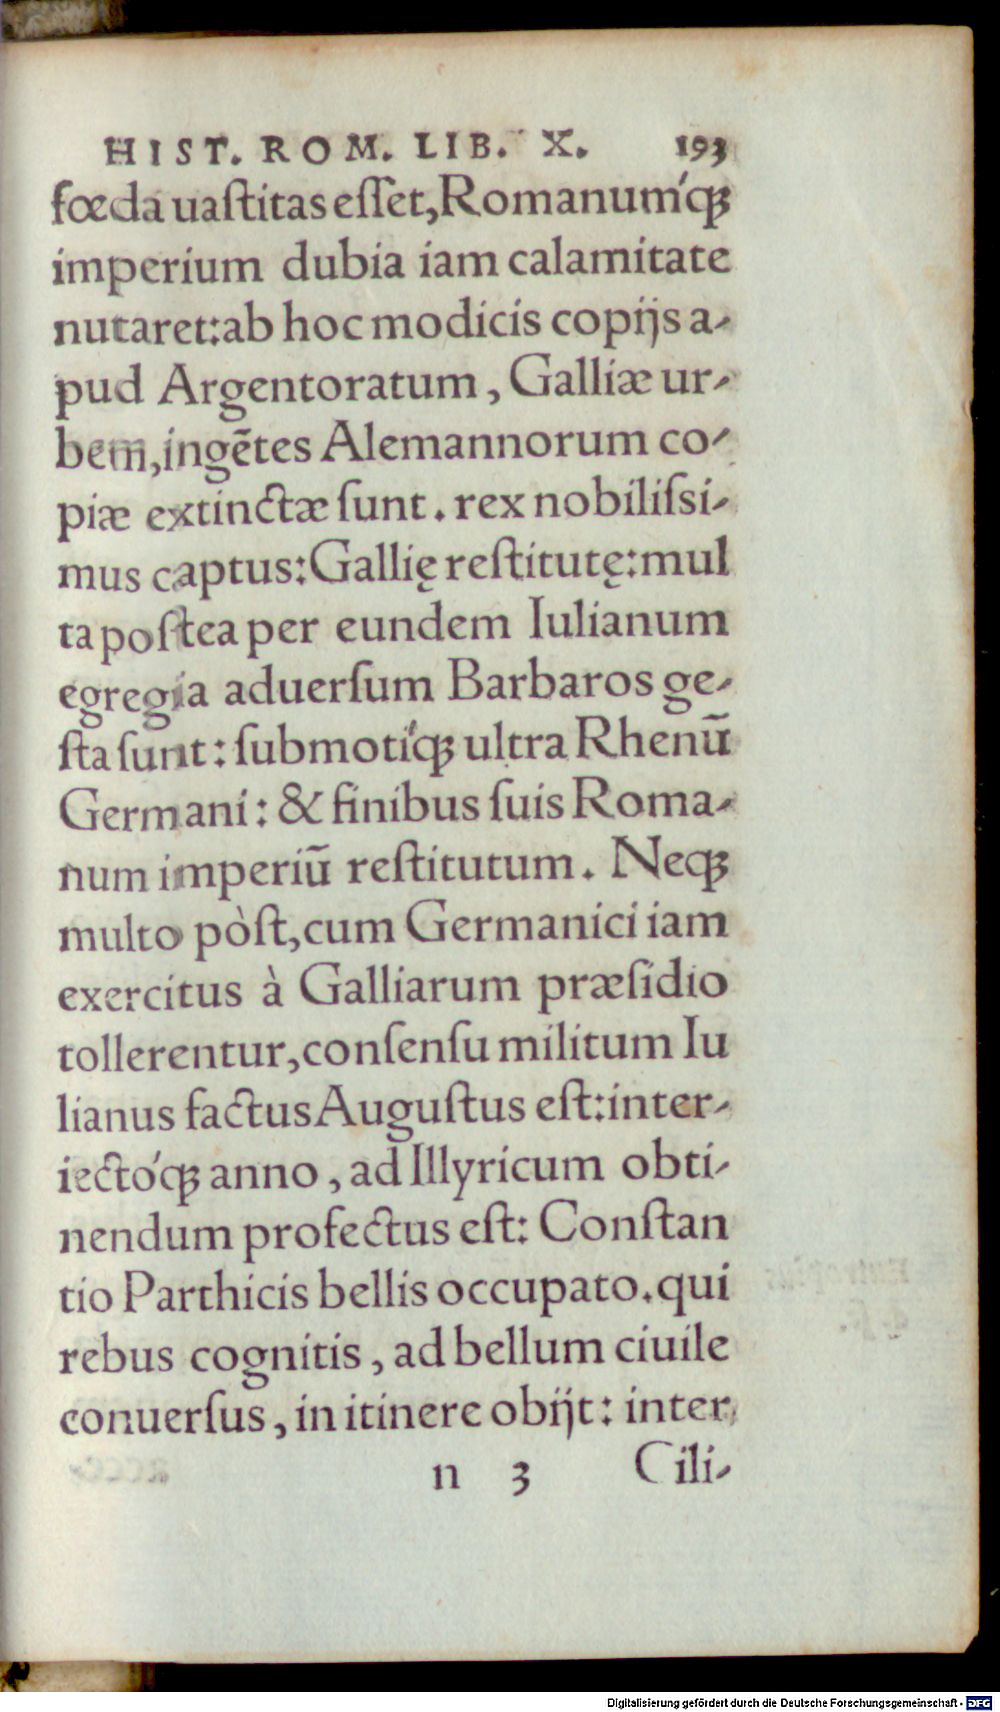 HIST. ROM. LIB. X. 193
fœda uaſtitas eſſet, Romanum´qꝫ
imperium dubia iam calamitate
nutaret: ab hoc modicis copijs a-
pud Argentoratum, Galliæ ur-
bem, ingētes Alemannorum co-
piæ extinctæ ſunt. rex nobiliſsi-
mus captus: Gallię reſtitutę: mul
ta poſtea per eundem Iulianum
egregia aduerſum Barbaros ge-
ſta ſunt: ſubmoti´qꝫ ultra Rhenū
Germani: & finibus ſuis Roma-
num imperiū reſtitutum. Neqꝫ
multo pòſt, cum Germanici iam
exercitus à Galliarum præſidio
tollerentur, conſenſu militum Iu
lianus factus Auguſtus eſt: inter-
iecto´qꝫ anno, ad Illyricum obti-
nendum profectus eſt: Conſtan
tio Parthicis bellis occupato. qui
rebus cognitis, ad bellum ciuile
conuerſus, in itinere obijt: inter
n 3 Cili-
Digitalisierung gefördert durch die Deutsche Forschungsgemeinschaft - DFG